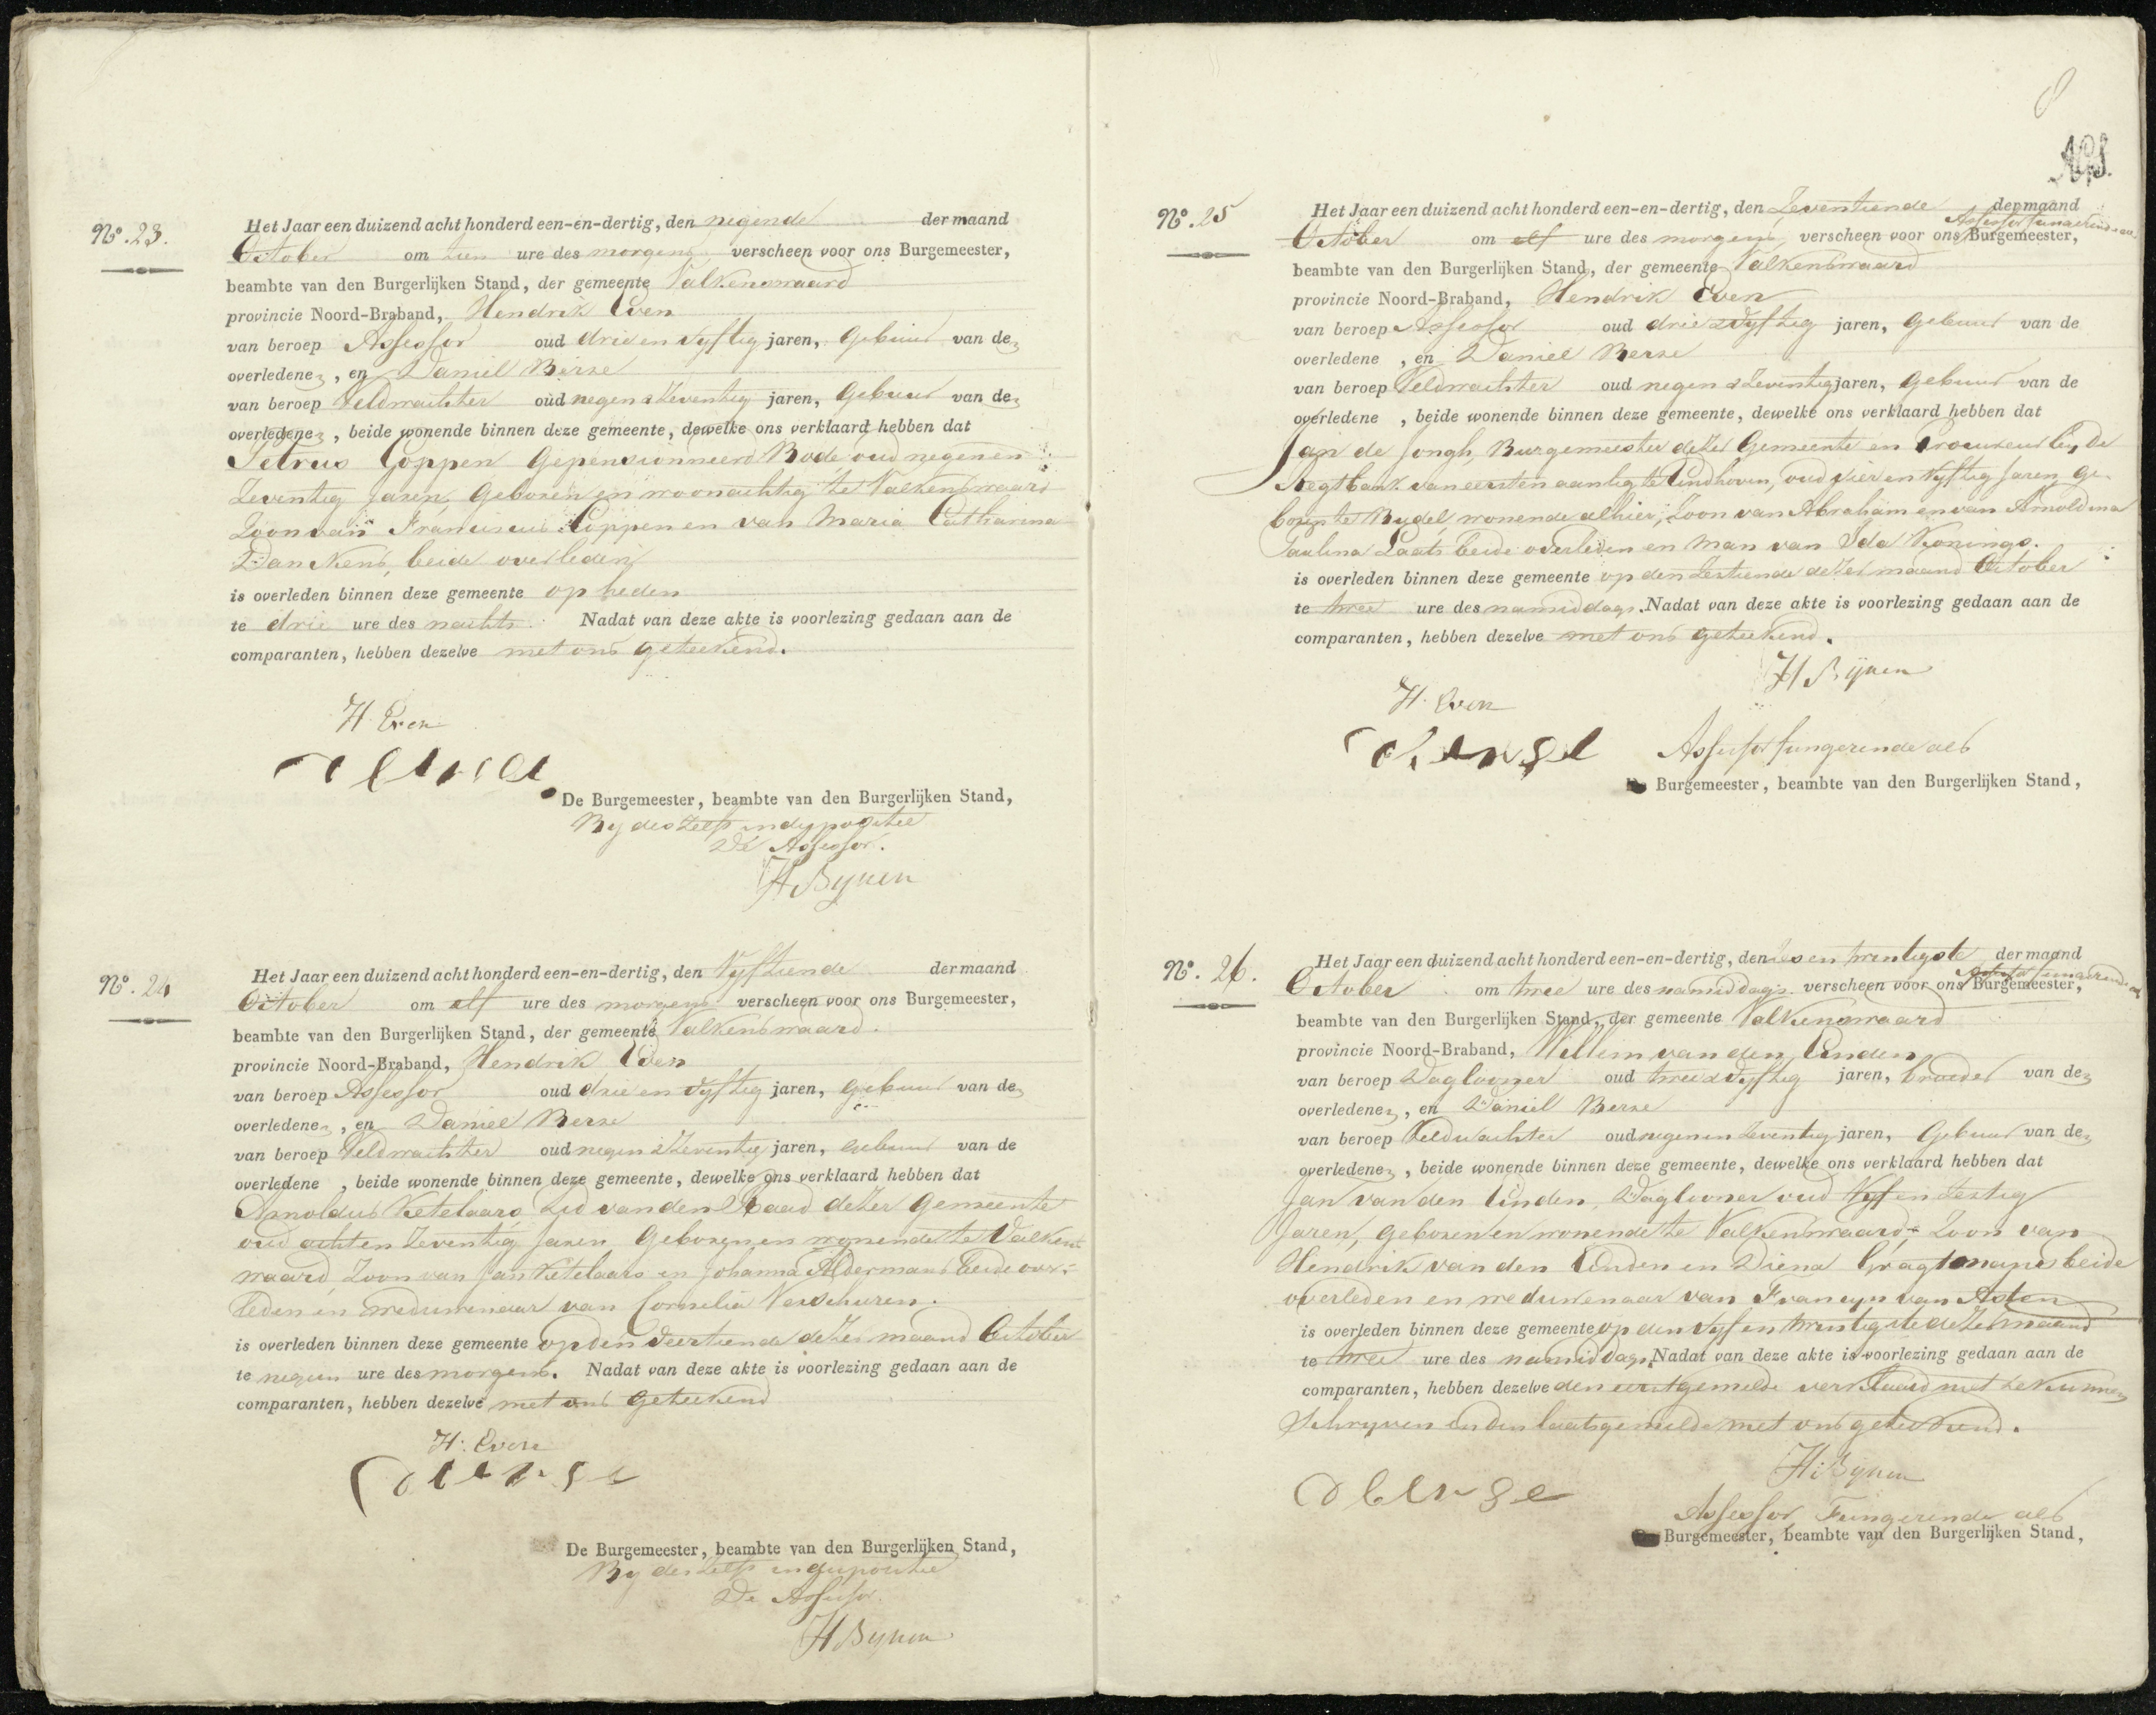 N.º 23.
Het Jaar een duizend acht honderd een-en-dertig, den negende der maand
October om tien ure des morgens verscheen voor ons Burgemeester,
beambte van den Burgerlijken Stand, der gemeente Valkenswaard
provincie Noord-Braband, Hendrik Even
van beroep Assessor oud drie en vyftig jaren, gebuur van de
overledene, en Daniel Berse
van beroep Veldwachter oud negen & zeventig jaren, gebuur van de
overledene, beide wonende binnen deze gemeente, dewelke ons verklaard hebben dat
Petrus Coppen Gepensionneerd Bode, oud negen en
zeventig jaren, geboren en woonachtig te Valkenswaard
Zoon van Franciscus Coppen en van Maria Catharina
beide overleden
is overleden binnen deze gemeente op heden
te drie ure des nachts. Nadat van deze akte is voorlezing gedaan aan de
comparanten, hebben dezelve met ons geteekend.
H. Even
De Burgemeester, beambte van den Burgerlijken Stand,
By deszelfs indispositie
De Assessor.
H Bynen
N.º 24
Het Jaar een duizend acht honderd een-en-dertig, den Vyftiende der maand
October om elf ure des morgens verscheen voor ons Burgemeester,
beambte van den Burgerlijken Stand, der gemeente Valkenswaard.
provincie Noord-Braband, Hendrik Even
van beroep Assessor oud drie en vyftig jaren, gebuur van de
overledene, en Daniel Berse
van beroep Veldwachter oud negen & zeventig jaren, gebuur van de
overledene, beide wonende binnen deze gemeente, dewelke ons verklaard hebben dat
Arnoldus Ketelaars Lid van den Raad dezer Gemeente
oud acht en zeventig jaren Geboren en wonende te Valkens
waard, Zoon van Jan Ketelaars en Johanna Aldermans beide over-
leden en weduwenaar van Cornelia Verschuren.
is overleden binnen deze gemeente op den veertiende dezer maand October
te negen ure des morgens. Nadat van deze akte is voorlezing gedaan aan de
comparanten, hebben dezelve met ons geteekend
H. Even
De Burgemeester, beambte van den Burgerlijken Stand,
By deszelfs indispositie
De Assessor.
H Bynen
N.º 25
Het Jaar een duizend acht honderd een-en-dertig, den Zeventiende der maand
Assessor fungerende als
October om elf ure des morgens, verscheen voor ons Burgemeester,
beambte van den Burgerlijken Stand, der gemeente Valkenswaard
provincie Noord-Braband, Hendrik Even
van beroep Assessor oud drie & vyftig jaren, gebuur van de
overledene, en Daniel Berse
van beroep Veldwachter oud negen & zeventig jaren, gebuur van de
overledene, beide wonende binnen deze gemeente, dewelke ons verklaard hebben dat
Jan de Jongh, Burgemeester dezer Gemeente en Procureur by de
Regtbank van eersten aanleg te Eindhoven, oud vier en vyftig jaren, ge-
boren te Budel, wonende alhier, Zoon van Abraham en van Arnoldina
Paulina Laats beide overleden en man van Ida Konings.
is overleden binnen deze gemeente op den zestiende dezer maand October
te twee ure des namiddags. Nadat van deze akte is voorlezing gedaan aan de
comparanten, hebben dezelve met ons geteekend.
H Bynen
H. Even
Assessor fungerende als
Burgemeester, beambte van den Burgerlijken Stand,
N.º 26.
Het Jaar een duizend acht honderd een-en-dertig, den zes en twintigste der maand
Assessor fungerende als
October om twee ure des namiddags verscheen voor ons Burgemeester,
beambte van den Burgerlijken Stand, der gemeente Valkenswaard
provincie Noord-Braband, Willem van den Einden
van beroep Daglooner oud twee & vyftig jaren, broeder van de
overledene, en Daniel Berse
van beroep Veldwachter oud negen en zeventig jaren, Gebuur van de
overledene, beide wonende binnen deze gemeente, dewelke ons verklaard hebben dat
Jan van den Einden, Daglooner oud Vyf en zestig
Jaren, geboren en wonende te Valkenswaard, Zoon van
Hendrik van den Einden en Diena beide
overleden en weduwenaar van Francyn van Asten
is overleden binnen deze gemeente op den vyf en twintigste dezer maand
te twee ure des namiddags. Nadat van deze akte is voorlezing gedaan aan de
comparanten, hebben dezelve den eerstgemelde verklaard niet te kunnen
schryven en den laatsgemelde met ons geteekend.
H. Bynen
Assessor Fungerende als
Burgemeester, beambte van den Burgerlijken Stand,